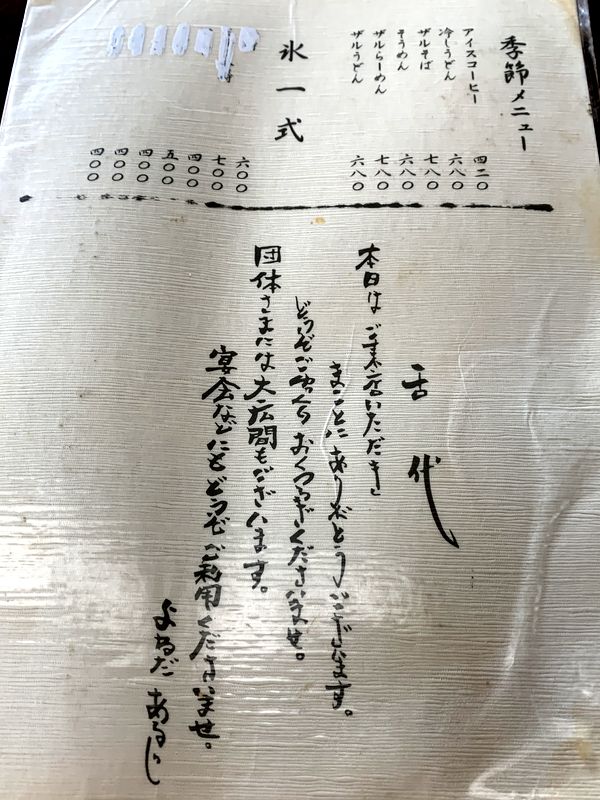 季節メニュー
アイスコーヒー 四二〇
冷しうどん 六八〇
ザルそば 七八〇
そうめん 六八〇
ザルらーめん 七八〇
ザルうどん 六八〇
氷一式
六〇〇
七〇〇
四〇〇
五〇〇
四〇〇
四〇〇
四〇〇
舌代
本日はご来店いただき
まことにありがとうございます。
どうぞごゆっくりおくつろぎくださいませ。
団体さまには大広間もございます。
宴会などにもどうぞご利用くださいませ。
よねだ あるじ